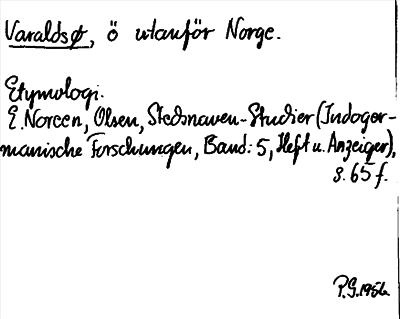 Varaldsø, ö utanför Norge.
Etymologi.
E. Noreen, Olsen, Stedsnavne-Studier (Indoger-
manische Forschungen, Band: 5, Heft u. Anzeiger),
s. 65 f.
P.G. 1956